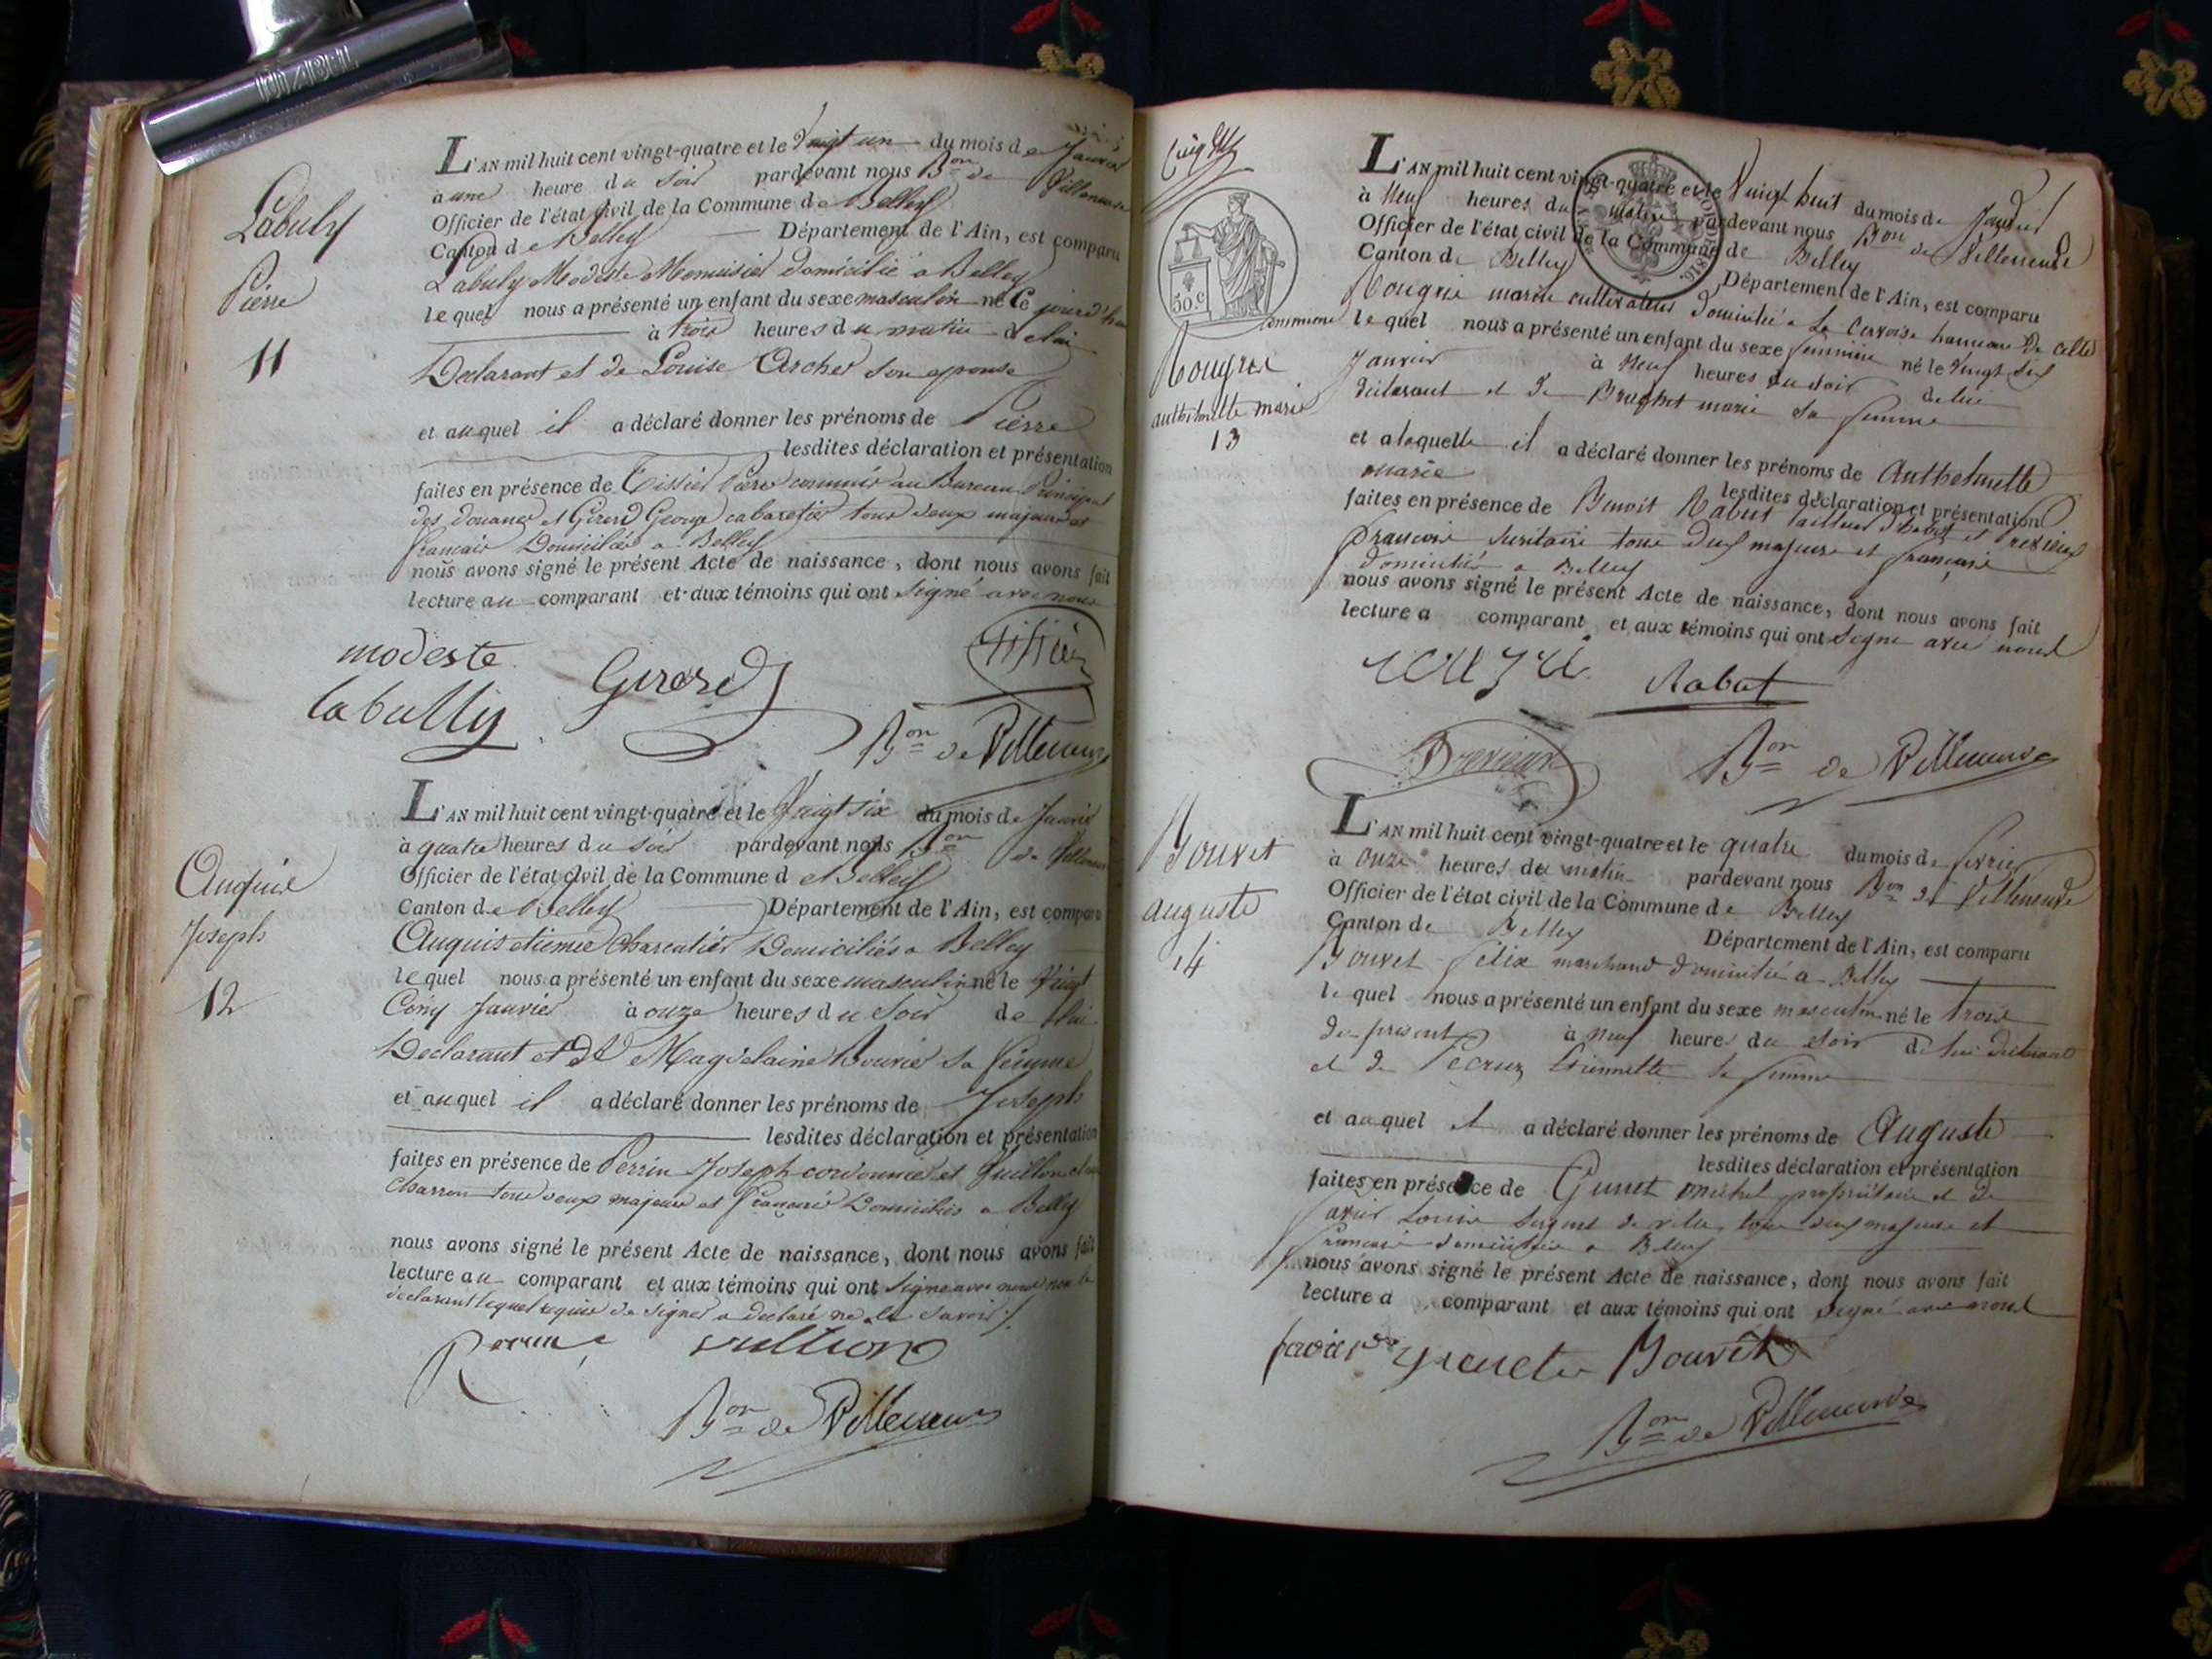 L'AN mil huit cent vingt-quatre et le Vingt un du mois de Janvier
à une heure du Soir pardevant nous Bon de Villeneuve
Officier de l'état civil de la Commune de Belley
Canton de Belley Département de l'Ain, est comparu
Labuly Modeste Menuisier domicilié a Belley
lequel nous a présenté un enfant du sexe masculin né Ce jourd'hui
à trois heures du matin de lui
Déclarant et de Louise Archer son epouse
et auquel il a déclaré donner les prénoms de Pierre
lesdites déclaration et présentation
faites en présence de Tissier Pierre commis au Bureau Principal
des douanes et Girerd George cabaretier tous deux majeurs et
francais Domiciliés a Belley
nous avons signé le présent Acte de naissance, dont nous avons fait
lecture au comparant et aux témoins qui ont signé avec nous
Labuly
Pierre
11
modeste
labully
Girerd
Tissier
Bon de Villeneuve
L'AN mil huit cent vingt-quatre et le Vingt six du mois de Janvier
à quatre heures du soir pardevant nous Bon de Villeneuve
Officier de l'état civil de la Commune de Belley
Canton de Belley Département de l'Ain, est comparu
Auquis etienne Domiciliés a Belley
lequel nous a présenté un enfant du sexe masculin né le Vingt
Cinq Janvier à onze heures du Soir de lui
Déclarant et de Magdelaine Bouvier sa femme
et auquel il a déclaré donner les prénoms de Joseph
lesdites déclaration et présentation
faites en présence de Perrin Joseph cordonnier et
Charron tous deux majeurs et francais Domiciliés a Belley
nous avons signé le présent Acte de naissance, dont nous avons fait
lecture au comparant et aux témoins qui ont signé avec nous non le
déclarant lequel requis de signer a declaré ne le savoir
Joseph
12
Perrin
Bon de Villeneuve
L'AN mil huit cent vingt-quatre et le Vingt huit du mois de Janvier
à Neuf heures du matin pardevant nous Bon de Villeneuve
Officier de l'état civil de la Commune de Belley
Canton de Belley Département de l'Ain, est comparu
marin cultivateur Domicilié a hameau de cette
commune lequel nous a présenté un enfant du sexe féminin né le Vingt Six
Janvier à Neuf heures du soir de lui
déclarant et de marie sa femme
et a laquelle il a déclaré donner les prénoms de Anthelmette
marie lesdites déclaration et présentation
faites en présence de Benoit Rabut tailleur d'habit et Drevieux
François tous deux majeurs et français
domiciliés a Belley
nous avons signé le présent Acte de naissance, dont nous avons fait
lecture a comparant et aux témoins qui ont signé avec nous
50 c.
1816.
Anthelmette marie
13
Rabut
Drevieux
Bon de Villeneuve
L'AN mil huit cent vingt-quatre et le quatre du mois de fevrier
à Onze heures du matin pardevant nous Bon de Villeneuve
Officier de l'état civil de la Commune de Belley
Canton de Belley Département de l'Ain, est comparu
Bouvet Félix marchand domicilié a Belley
lequel nous a présenté un enfant du sexe masculin né le trois
du présent à Neuf heures du soir de lui déclarant
et de Etiennette sa femme
et auquel il a déclaré donner les prénoms de Auguste
lesdites déclaration et présentation
faites en présence de michel propriétaire et de
Louis Sergent de ville, tous deux majeurs et
français domiciliés a Belley
nous avons signé le présent Acte de naissance, dont nous avons fait
lecture a comparant et aux témoins qui ont signé avec nous
Bouvet
auguste
14
Bouvet
Bon de Villeneuve